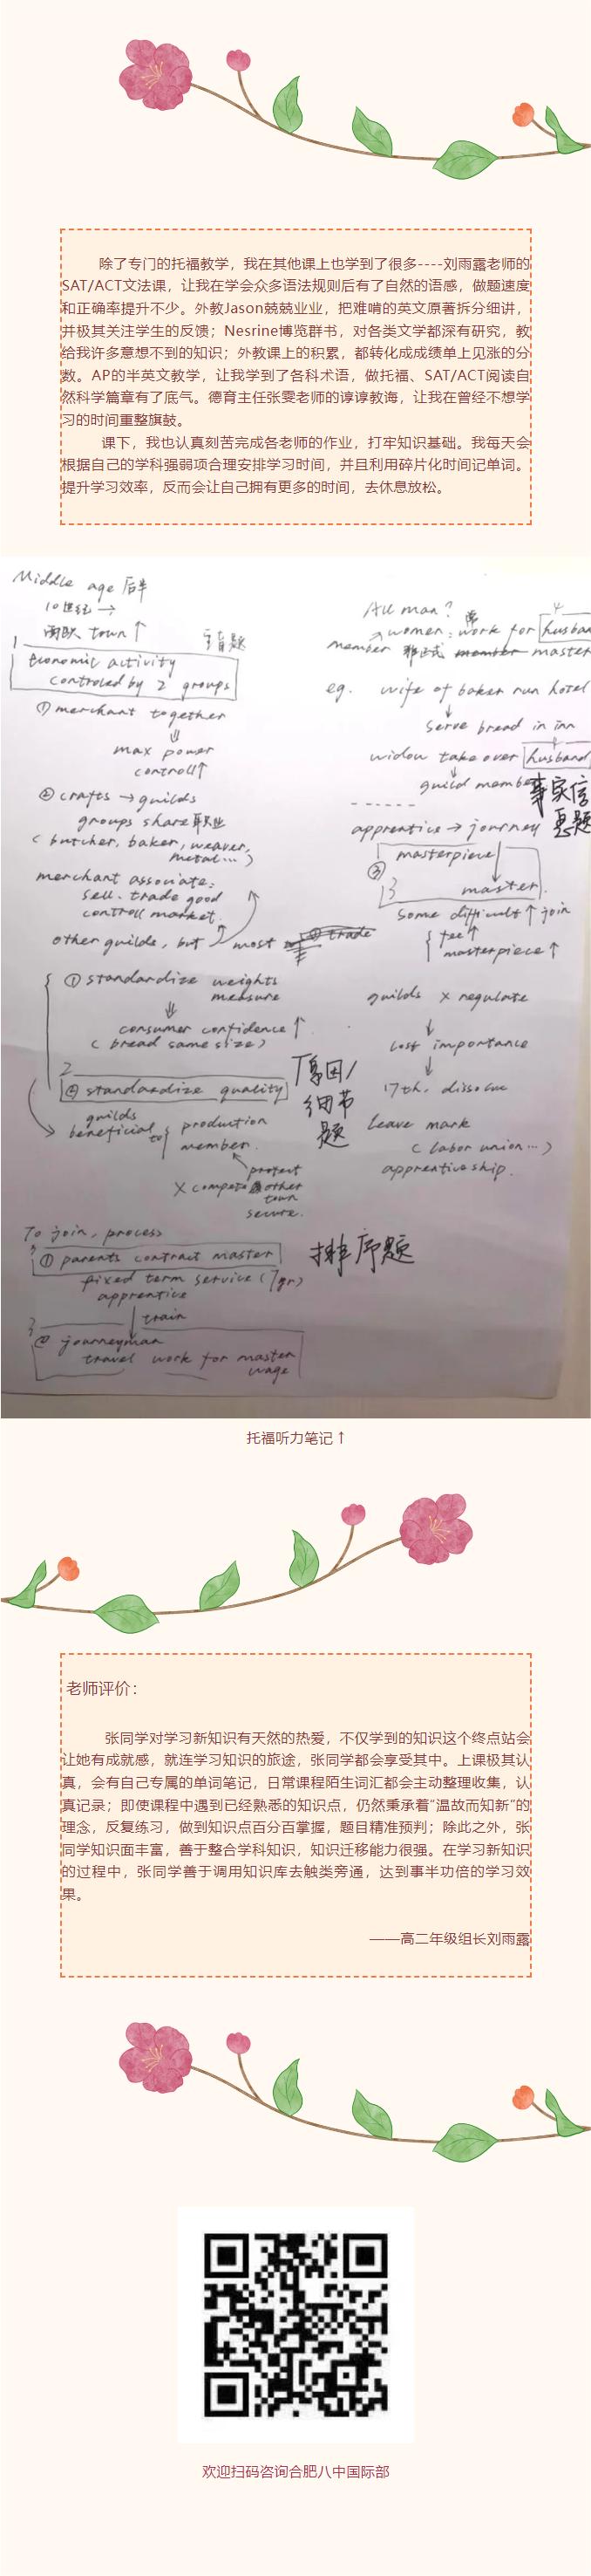 除了专门的托福教学，我在其他课上也学到了很多----刘雨露老师的
SAT/ACT文法课，让我在学会众多语法规则后有了自然的语感，做题速度
和正确率提升不少。外教Jason兢兢业业，把难啃的英文原著拆分细讲，
并极其关注学生的反馈；Nesrine博览群书，对各类文学都深有研究，教
给我许多意想不到的知识；外教课上的积累，都转化成成绩单上见涨的分
数。AP的半英文教学，让我学到了各科术语，做托福、SAT/ACT阅读自
然科学篇章有了底气。德育主任张雯老师的谆谆教诲，让我在曾经不想学
习的时间重整旗鼓。
课下，我也认真刻苦完成各老师的作业，打牢知识基础。我每天会
根据自己的学科强弱项合理安排学习时间，并且利用碎片化时间记单词。
提升学习效率，反而会让自己拥有更多的时间，去休息放松。
Middle age 后半
10世纪 →
西欧 town ↑
主旨题
1
Economic activity
controled by 2 groups
① merchant together
⇓
max power
controll ↑
② crafts → guilds
groups share 职业
( butcher, baker, weaver,
metal... )
merchant associate:
sell. trade good
controll market.
other guilds, but most
trade
① standardize weights
measure
⇓
consumer confidence ↑
( bread same size )
2
② standardize quality
原因/
细节
题
guilds
beneficial to { production
member.
protect
× compete other
town
secure.
To join, process
3
① parents contract master
排序题
fixed term service (7yr)
apprentice
↓ train
3
② journeyman
travel work for master
wage
All man?
4
women: work for husband
member 非正式 member master
eg. wife of baker run hotel
↓
serve bread in inn
widow take over husband
↓
guild member
事实信
息题
apprentice → journey
masterpiece
③
3
master.
some difficult ↑ join
{ fee ↑
masterpiece ↑
guilds × regulate
↓
lost importance
↓
17th, dissolve
leave mark
( labor union... )
apprenticeship.
托福听力笔记↑
老师评价：
张同学对学习新知识有天然的热爱，不仅学到的知识这个终点站会
让她有成就感，就连学习知识的旅途，张同学都会享受其中。上课极其认
真，会有自己专属的单词笔记，日常课程陌生词汇都会主动整理收集，认
真记录；即使课程中遇到已经熟悉的知识点，仍然秉承着“温故而知新”的
理念，反复练习，做到知识点百分百掌握，题目精准预判；除此之外，张
同学知识面丰富，善于整合学科知识，知识迁移能力很强。在学习新知识
的过程中，张同学善于调用知识库去触类旁通，达到事半功倍的学习效
果。
——高二年级组长刘雨露
欢迎扫码咨询合肥八中国际部